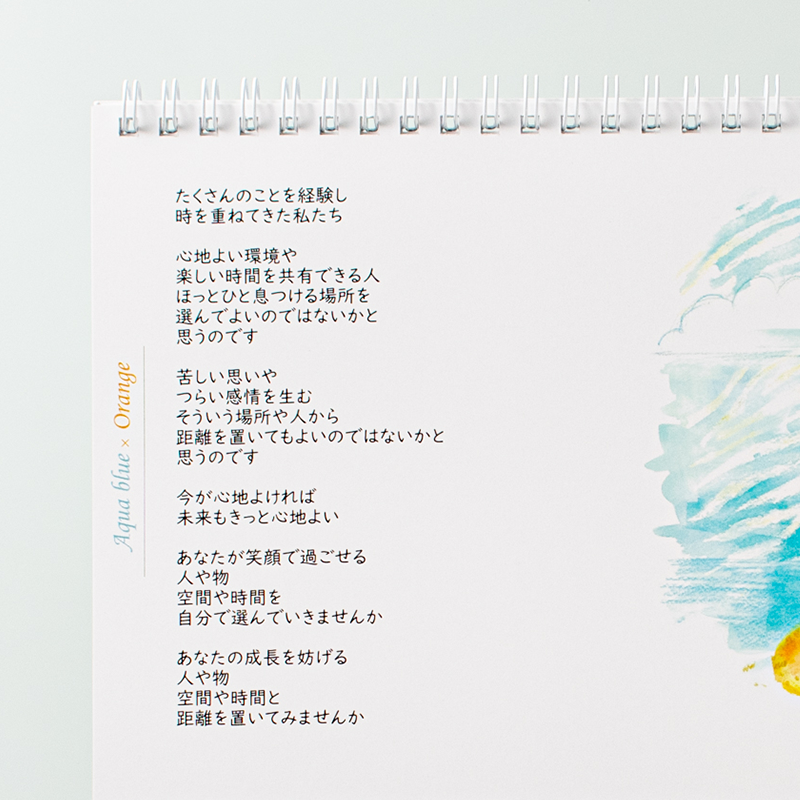 たくさんのことを経験し
時を重ねてきた私たち
心地よい環境や
楽しい時間を共有できる人
ほっとひと息つける場所を
選んでよいのではないかと
思うのです
苦しい思いや
つらい感情を生む
そういう場所や人から
距離を置いてもよいのではないかと
思うのです
今が心地よければ
未来もきっと心地よい
あなたが笑顔で過ごせる
人や物
空間や時間を
自分で選んでいきませんか
あなたの成長を妨げる
人や物
空間や時間と
距離を置いてみませんか
Aqua blue × Orange